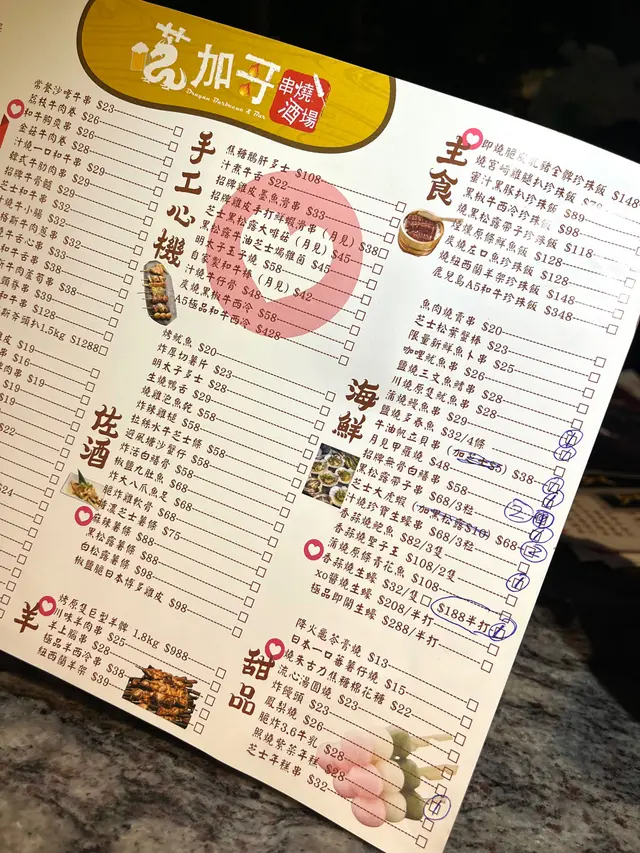 蔸加子
串燒
酒場
Dragon Barbecue & Bar
常餐沙嗲牛串 $23
荔枝牛肉卷 $26
和牛胸炙串 $26
金菇牛肉卷 $28
汁燒一口和牛串 $29
韓式牛肋肉串 $29
招牌牛骨髓 $29
芝士和牛串 $32
手工心機
焦糖鵝肝多士 $108
汁煮牛舌 $22
招牌雞皮墨魚滑串 $33
招牌雞皮手打鮮蝦滑串(月見) $38
芝士黑松露大啡菇(月見) $45
黑松露牛油芝士焗雜菌 $45
明太子玉子燒 $58
自家製和牛棒(月見) $42
汁燒牛仔骨 $48
炭燒黑椒牛西冷 $58
A5極品和牛西冷 $428
主食
即燒脆皮乳豬全髀珍珠飯 $148
燒宮崎雞腿扒珍珠飯
蜜汁黑豚扒珍珠飯 $89
黑椒牛西冷珍珠飯 $98
炭燒黑松露帶子珍珠飯 $118
煙燻原條鮮魚飯 $128
炭燒左口魚珍珠飯 $128
燒紐西蘭羊架珍珠飯 $148
鹿兒島A5和牛珍珠飯 $348
佐酒
烤魷魚 $20
炸厚切薯片 $23
明太子多士 $28
生燒鴨舌 $29
燒雞泡魚乾 $58
炸辣雞槌 $58
拉絲水牛芝士條 $58
避風塘沙鬐仔 $58
炸活白鱔骨 $58
椒鹽九肚魚 $68
炸大八爪魚足 $68
脆炸雞軟骨 $68
特濃芝士薯條 $75
麻辣薯條 $88
黑松露薯條 $88
白松露薯條 $98
椒鹽脆日本博多雞皮 $98
海鮮
魚肉燒賣串 $20
芝士松葉蟹棒 $23
限量新鮮魚卜串 $25
咖喱魷魚串 $26
鹽燒三文魚腩串 $28
川燒原隻魷魚串 $28
蒲燒鰻魚串 $29
鹽燒多春魚 $32/4條
牛油帆立貝串 (加芝士$5) $38
月見甲羅燒 $48
招牌無骨白鱔串 $58
黑松露帶子串 $68/3粒
芝士大虎蝦 (加黑松露$10) $68
汁燒珍寶生蠔串 $68/3粒
香蒜燒鮑魚 $82/3隻
香蒜燒聖子王 $108/2隻
蒲燒原條青花魚 $108
香蒜燒生蠔 $32/隻 $188半打
XO醬燒生蠔 $208/半打
極品即開生蠔 $288/半打
羊
烤原隻巨型羊髀 1.5kg $988
川味羊肉串 $25
羊上腦串 $28
極品羊西冷串 $38
紐西蘭羊架 $39
甜品
降火龜苓膏燒 $13
日本一口蕃薯仔燒 $15
燒朱古力焦糖棉花糖 $22
流心湯圓燒 $23
炸饅頭 $23
鳳梨燒 $26
脆炸3.6牛乳 $28
照燒紫菜年糕 $28
芝士年糕串 $32